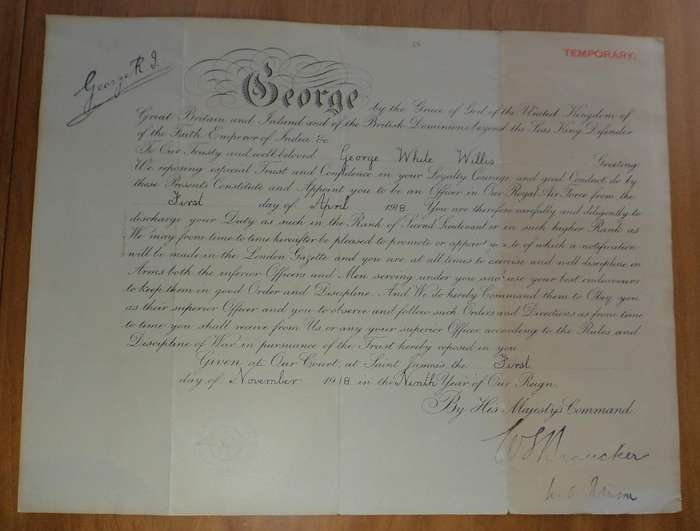 TEMPORARY.
George R I
George by the Grace of God of the United Kingdom of
Great Britain and Ireland and of the British Dominions beyond the Seas King Defender
of the Faith Emperor of India &c
To Our Trusty and wellbeloved George White Willis Greeting:
We reposing especial Trust and Confidence in your Loyalty Courage and good Conduct do by
these Presents Constitute and Appoint you to be an Officer in Our Royal Air Force from the
First day of April 1918. You are therefore carefully and diligently to
discharge your Duty as such in the Rank of Second Lieutenant or in such higher Rank as
We may from time to time hereafter be pleased to promote or appoint you to of which a notification
will be made in the London Gazette and you are at all times to exercise and well discipline in
Arms both the inferior Officers and Men serving under you and use your best endeavours
to keep them in good Order and Discipline. And We do hereby Command them to Obey you
as their superior Officer and you to observe and follow such Orders and Directions as from time
to time you shall receive from Us or any your superior Officer according to the Rules and
Discipline of War in pursuance of the Trust hereby reposed in you
Given at Our Court at Saint James's the First
day of November 1918 in the Ninth Year of Our Reign.
By His Majesty's Command